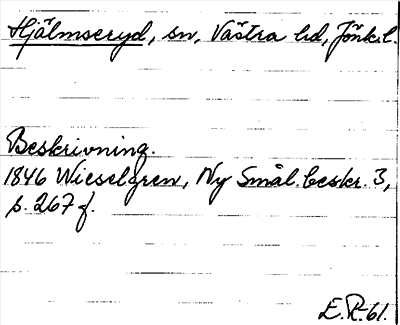 Hjälmseryd, sn, Västra hd, Jönk.l.
Beskrivning.
1846 Wieselgren, Ny Smål. beskr. 3,
s. 267 f.
E.R. 61.